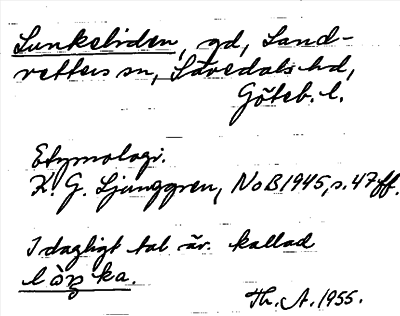 Lunkeliden, gd, Land-
vetters sn, Sävedals hd,
Göteb. l.
Etymologi.
K. G. Ljunggren, NoB 1945, s. 47 ff.
I dagligt tal är kallad
ka.
Th. A. 1955.